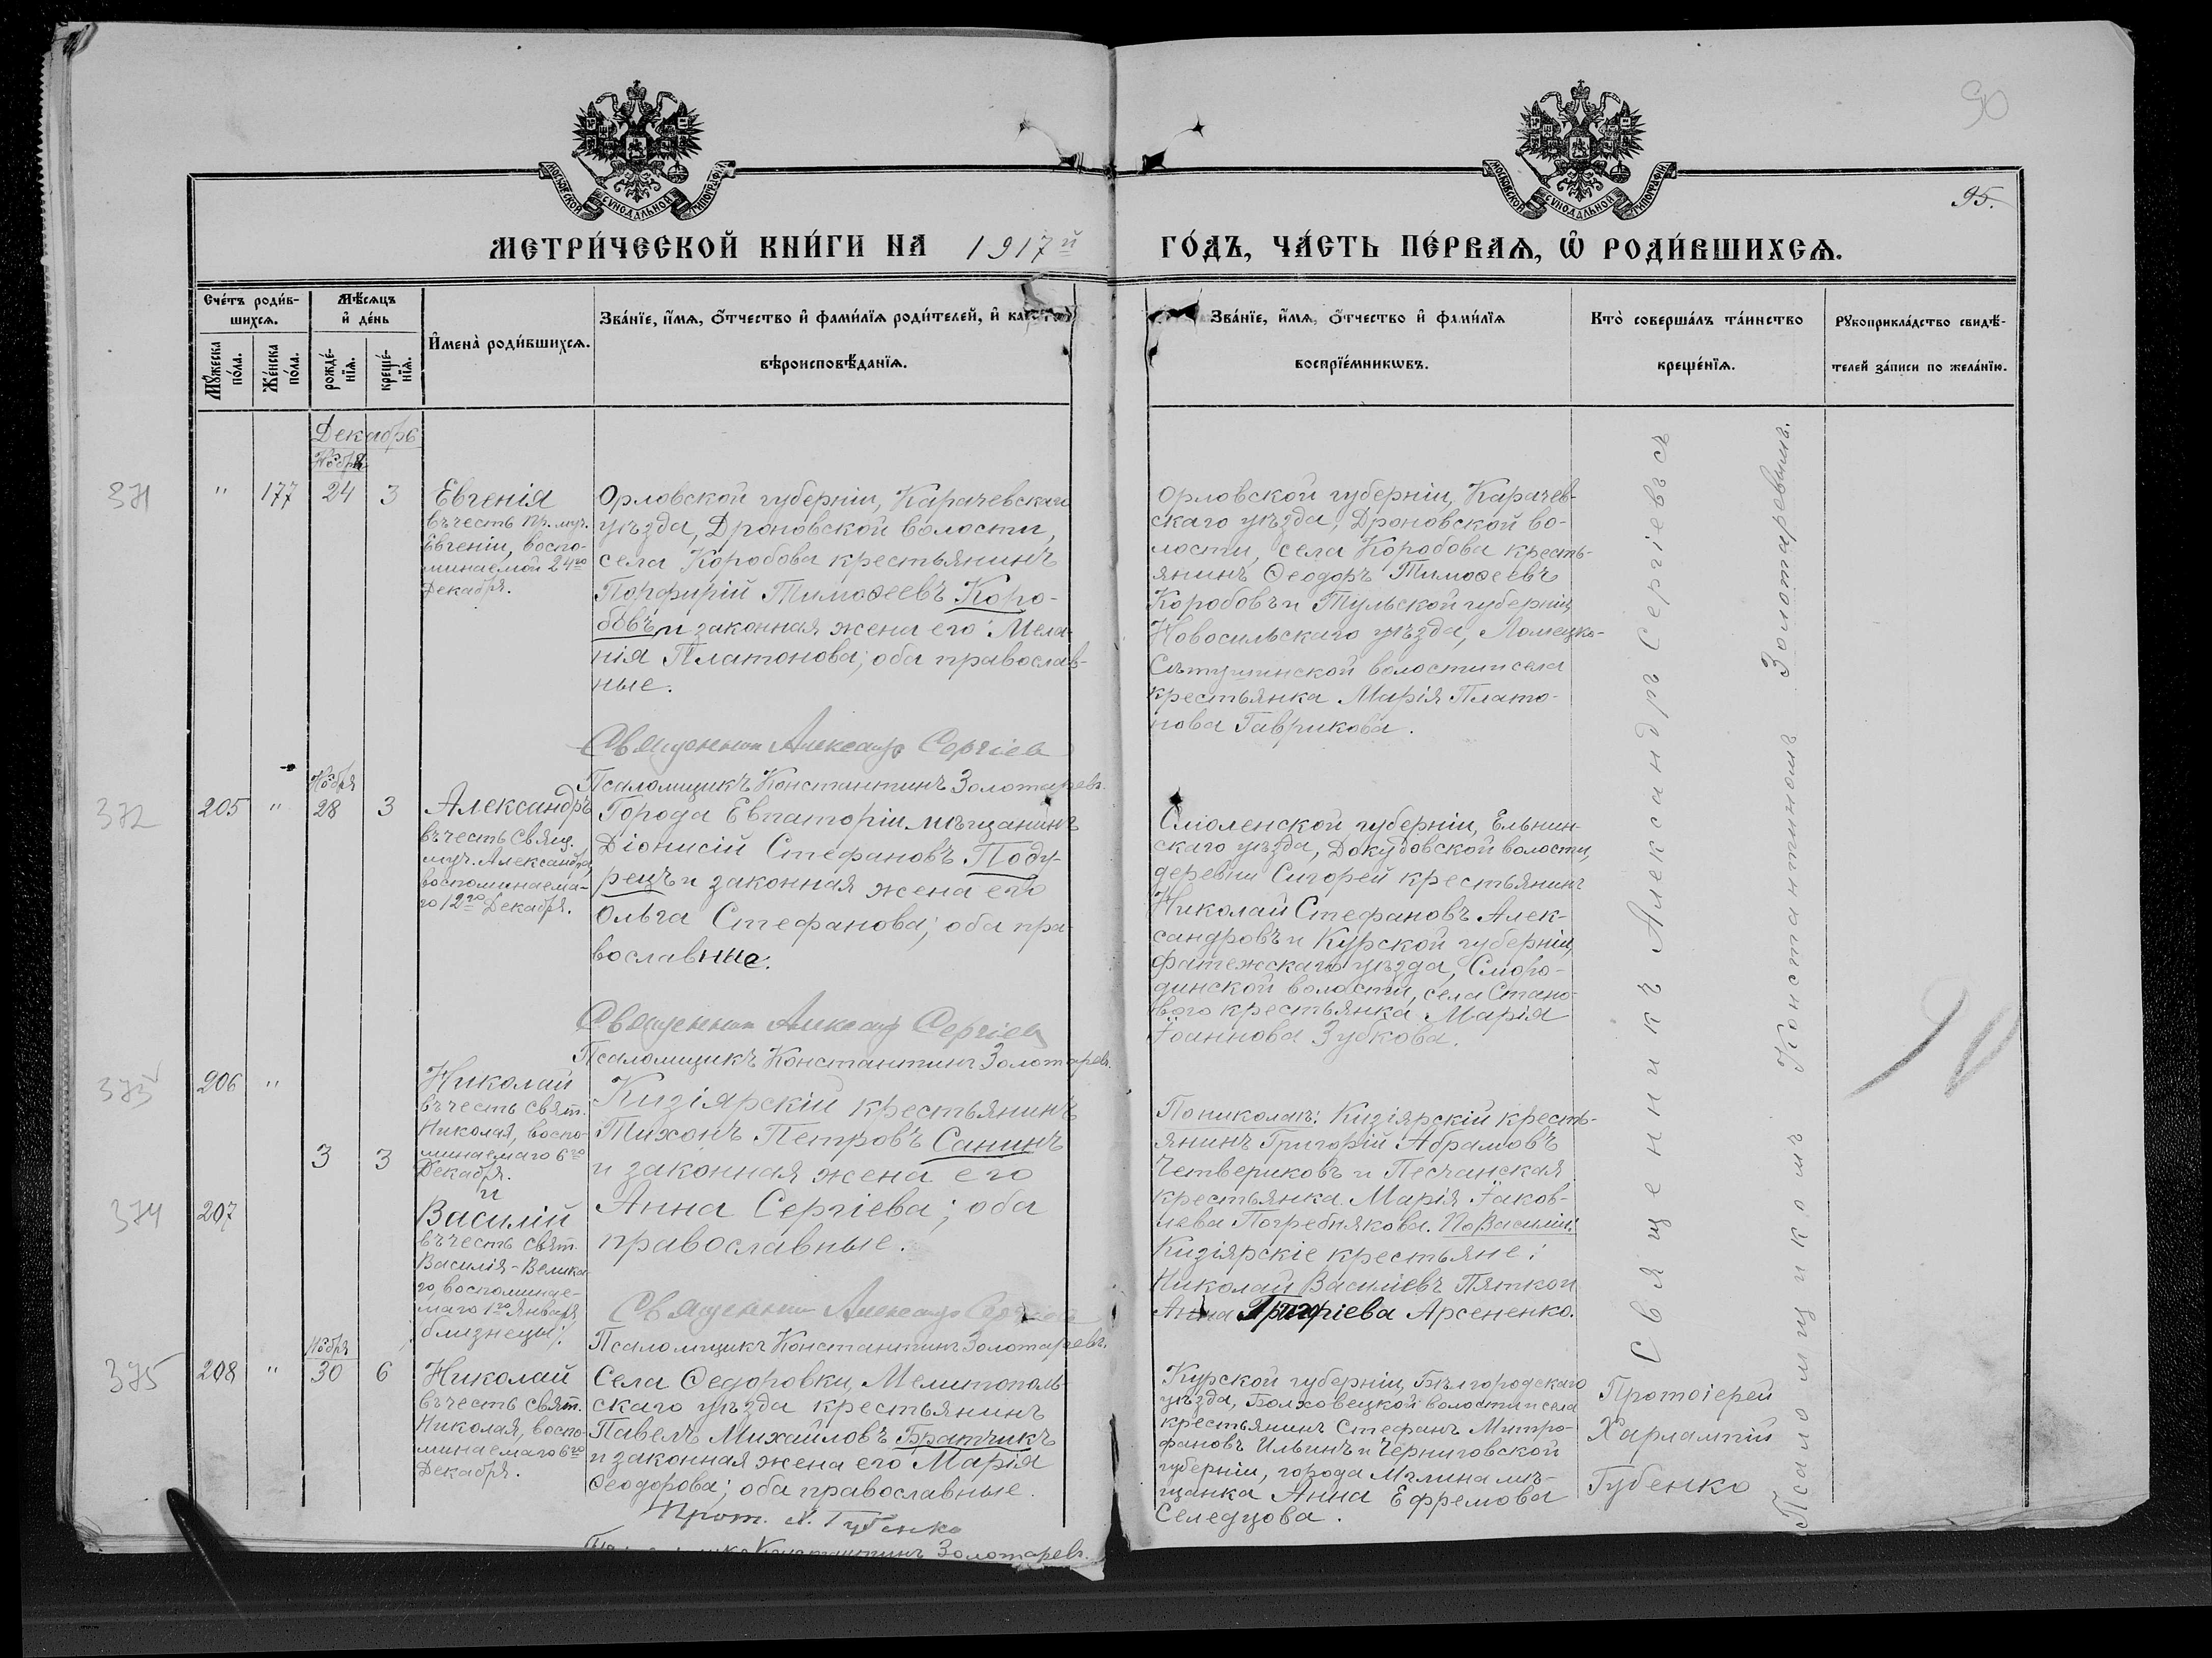 90
95.
МОСКОВСКОЙ СѴНОДАЛЬНОЙ ТИПОГРАФІИ
МОСКОВСКОЙ СѴНОДАЛЬНОЙ ТИПОГРАФІИ
МЕТРИ́ЧЕСКОЙ КНИ́ГИ НА 1917й
ГО́ДЪ, ЧА́СТЬ ПЕ́РВАѦ, Ѽ РОДИ́ВШИХСѦ.
Сче́тъ роди́в-
шихсѧ.
Мѣ́сѧцъ
и҆ де́нь
Мꙋ́жеска по́ла.
Же́нска по́ла.
рожде́-
нїѧ.
креще́-
нїѧ.
И҆мена̀ роди́вшихсѧ.
Зва́нїе, и҆́мѧ, ѻ҆́тчество и҆ фами́лїѧ роди́телей, и҆
вѣроисповѣ́данїѧ.
Зва́нїе, и҆́мѧ, ѻ҆́тчество и҆ фами́лїѧ
воспрїе́мникѡвъ.
Кто̀ соверша́лъ та́инство
креще́нїѧ.
Рꙋкоприкла́дство свидѣ́-
телей за́писи по жела́нїю.
Декабрь
Ноября
371
" 177 24 3
Евгенія
въ честь пр. муч.
Евгеніи, воспо-
минаемой 24го
Декабря.
Орловской губерніи, Карачевскаго
уѣзда, Дроновской волости,
села Коробова крестьянинъ
Порфирій Тимоѳеевъ Коро-
бовъ и законная жена его Мела-
нія Платонова; оба православ-
ные.
Священник Александр Сергіев
Псаломщикъ Константинъ Золотаревъ.
Орловской губерніи, Карачев-
скаго уѣзда, Дроновской во-
лости, села Коробова кресть-
янинъ Ѳеодоръ Тимоѳеевъ
Коробовъ и Тульской губерніи
Новосильскаго уѣзда,
волости и села
крестьянка Марія Плато-
нова Гаврикова.
372
205 " Ноября 28 3
Александръ
въ честь свящ.
муч. Александра,
воспоминаема-
го 12го Декабря.
Города Евпаторіи мѣщанинъ
Діонисій Стефановъ Поду-
рецъ и законная жена его
Ольга Стефанова; оба пра-
вославные.
Священник Александр Сергіев
Псаломщикъ Константинъ Золотаревъ.
Смоленской губерніи, Ельнин-
скаго уѣзда, Докудовской волости,
деревни Сигорей крестьянинъ
Николай Стефановъ Алек-
сандровъ и Курской губерніи,
Фатежскаго уѣзда, Сморо-
динской волости, села Стано-
вого крестьянка Марія
Іоаннова Зубкова.
373
206 "
3 3
Николай
въ честь свят.
Николая, воспо-
минаемаго 6го
Декабря.
и
374
207
Василій
въ честь свят.
Василія-Велика-
го, воспоминае-
маго 1го Января
близнецы;
Кизіярскій крестьянинъ
Тихонъ Петровъ Санинъ
и законная жена его
Анна Сергіева; оба
православные.
Священник Александр Сергіев
Псаломщикъ Константинъ Золотаревъ.
По Николаѣ: Кизіярскій кресть-
янинъ Григорій Абрамовъ
Четвериковъ и Песчанская
крестьянка Марія Іаков-
лева Погребнякова. По Василіи:
Кизіярскіе крестьяне:
Николай Василіевъ Пяткои
Анна Григоріева Арсененко.
375
208 " Ноября 30 6
Николай
въ честь свят.
Николая, воспо-
минаемаго 6го
Декабря.
Села Ѳедоровки, Мелитополь-
скаго уѣзда крестьянинъ
Павелъ Михайловъ Братчикъ
и законная жена его Марія
Ѳеодорова; оба православные.
Прот. Х. Губенко
Константинъ Золотаревъ.
Курской губерніи, Бѣлгородскаго
уѣзда, Болховецкой волости и села
крестьянинъ Стефанъ Митро-
фановъ Ильинъ и Черниговской
губерніи, города Мглина мѣ-
щанка Анна Ефремова
Селедцова.
Протоіерей
Харлампій
Губенко
Священникъ Александръ Сергіевъ съ
Псаломщикомъ Константиномъ Золотаревымъ.